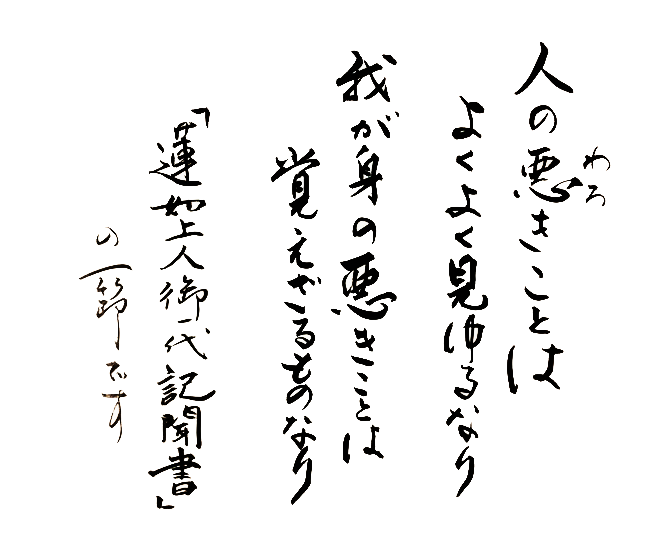 人の悪きことは
わろ
よくよく見ゆるなり
我が身の悪きことは
覚えざるものなり
「蓮如上人御一代記聞書」
の一節です